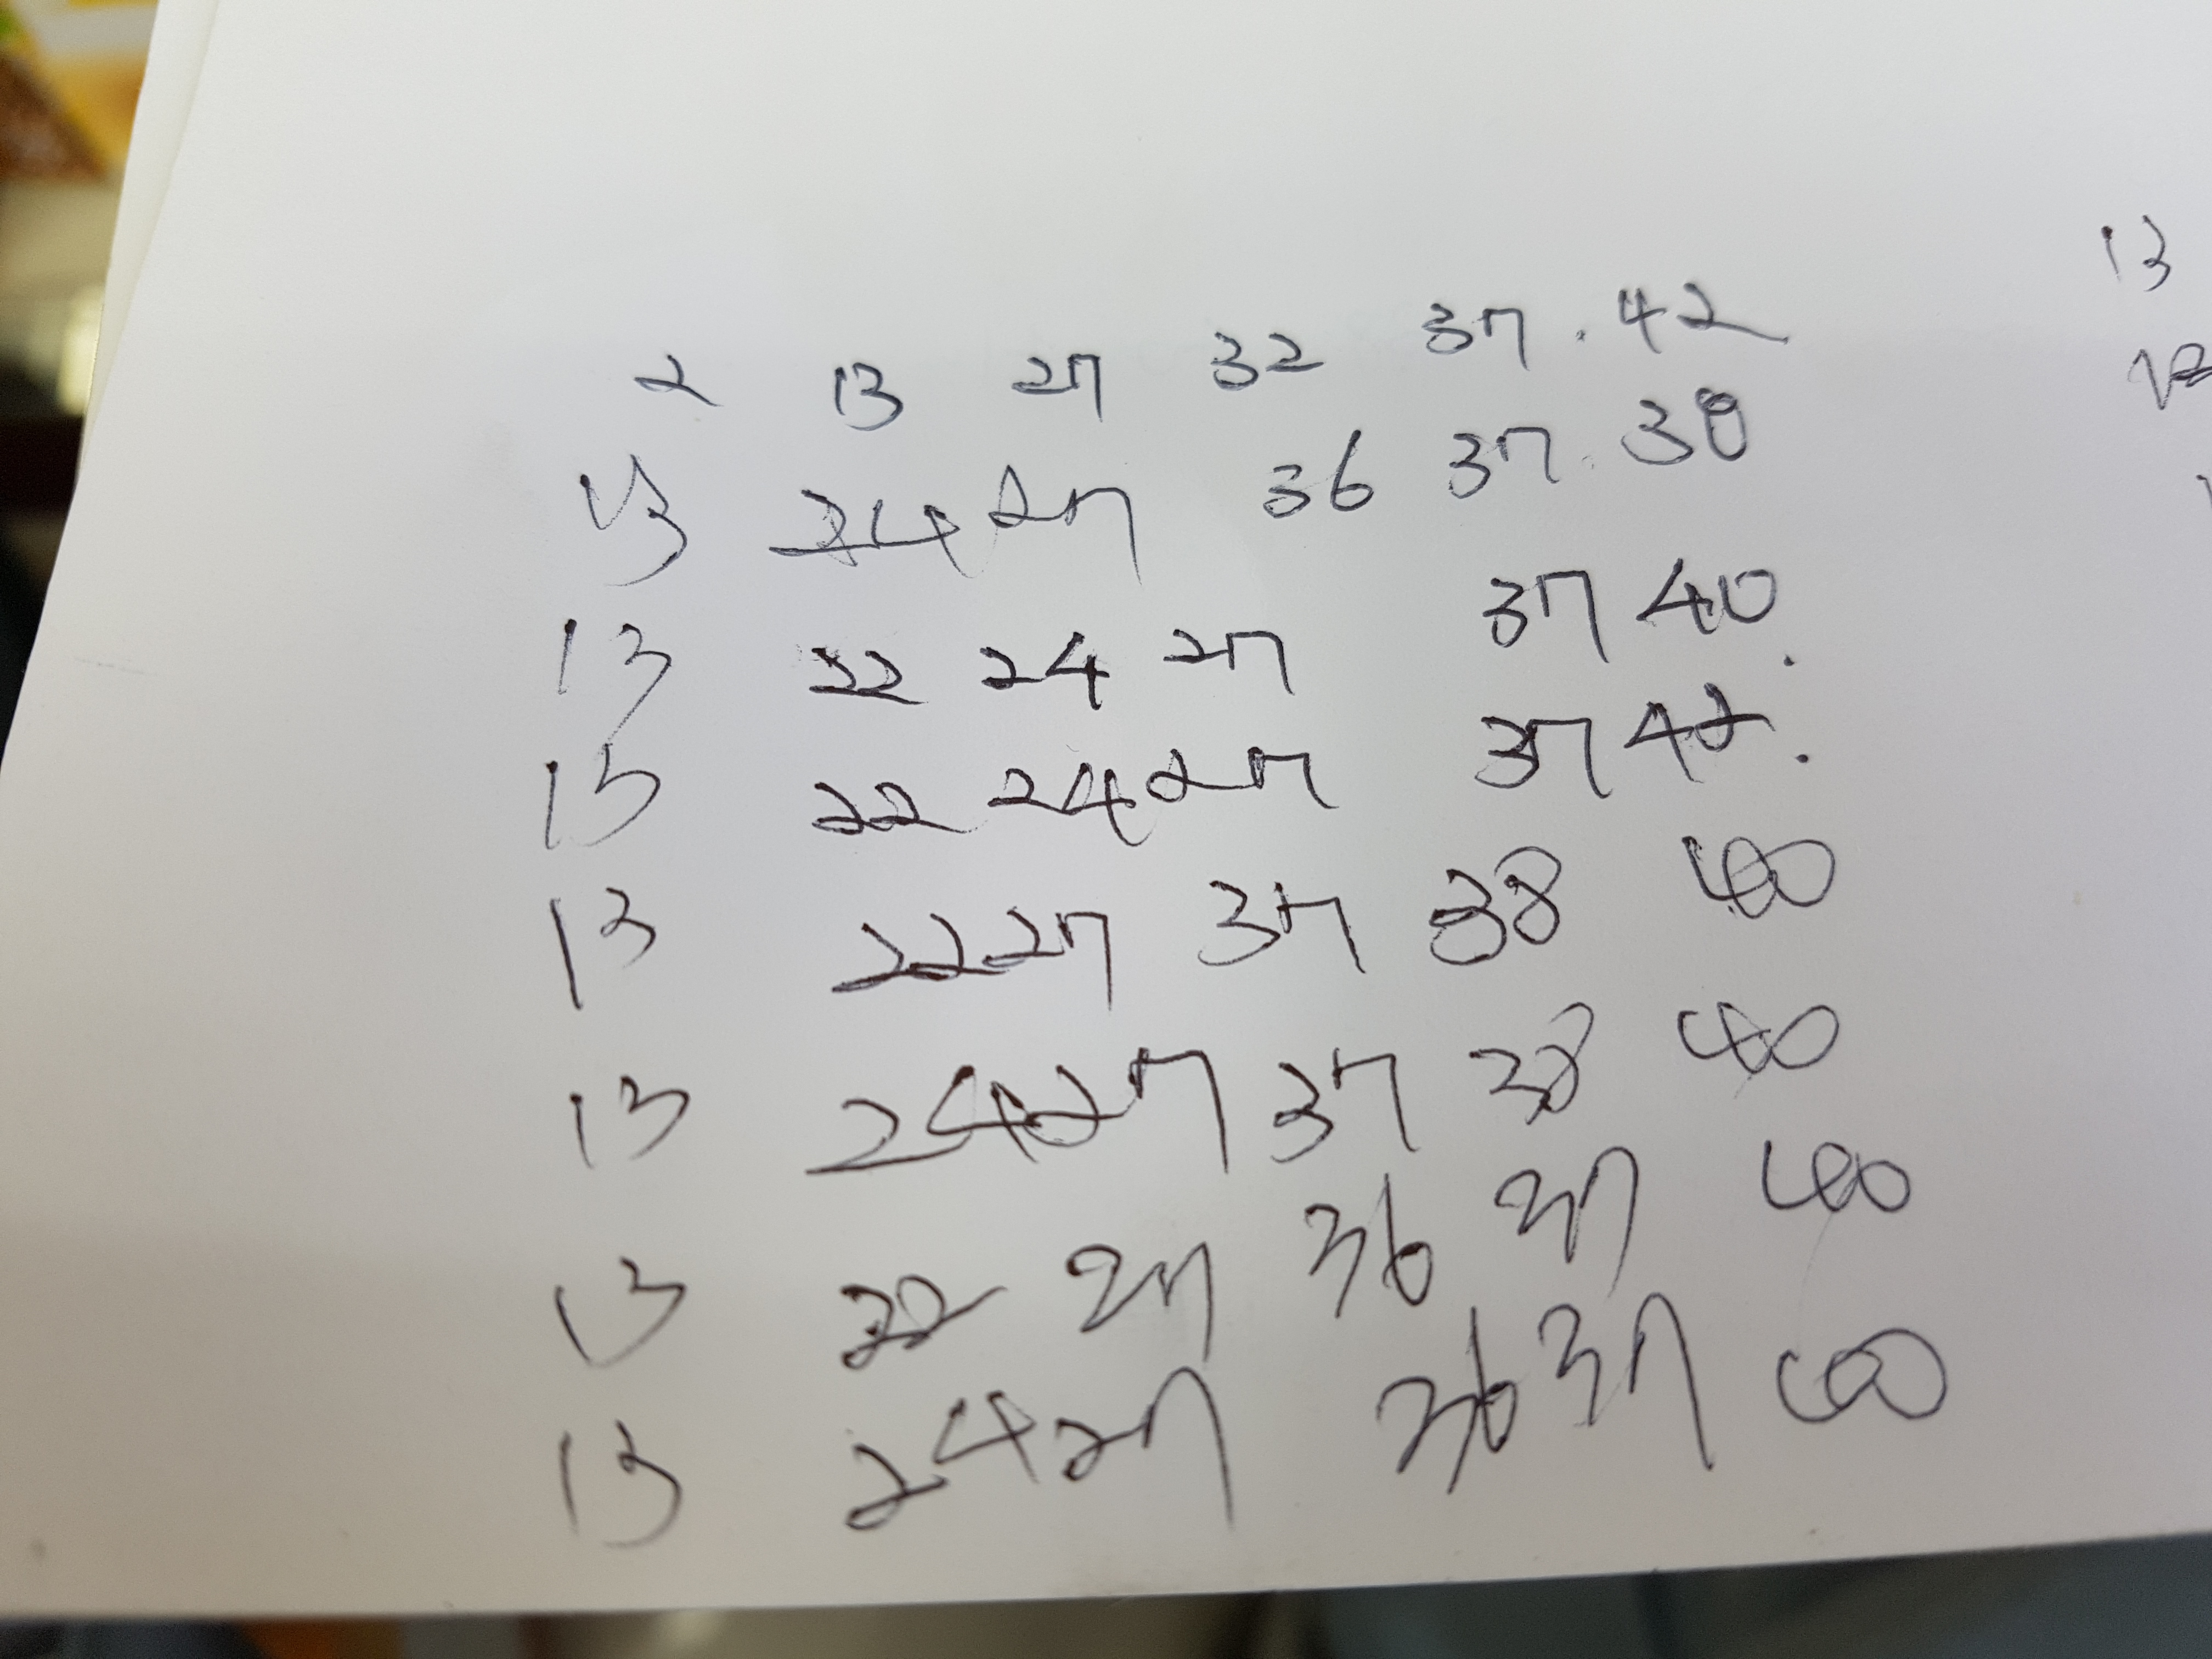 2 13 27 32 37 . 42
13 24 27 36 37 . 38
13 22 24 27 37 40 .
13 22 24 27 37 42 .
13 22 27 37 38 40
13 24 27 37 38 40
13 22 27 36 37 40
13 24 27 36 37 40
13